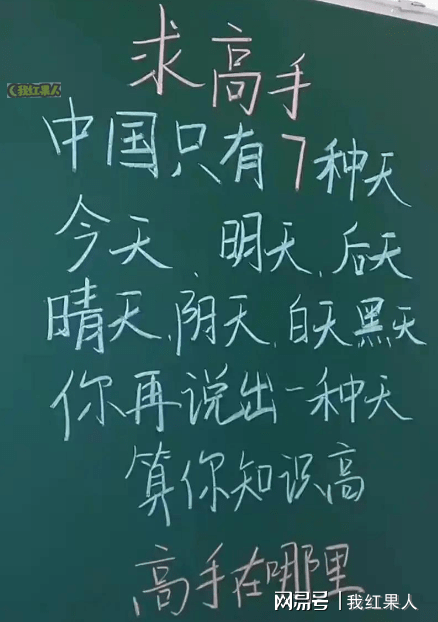 求高手
(我红果人
中国只有7种天
今天、明天、后天
晴天、阴天、白天黑天
你再说出一种天
算你知识高
高手在哪里
网易号 | 我红果人